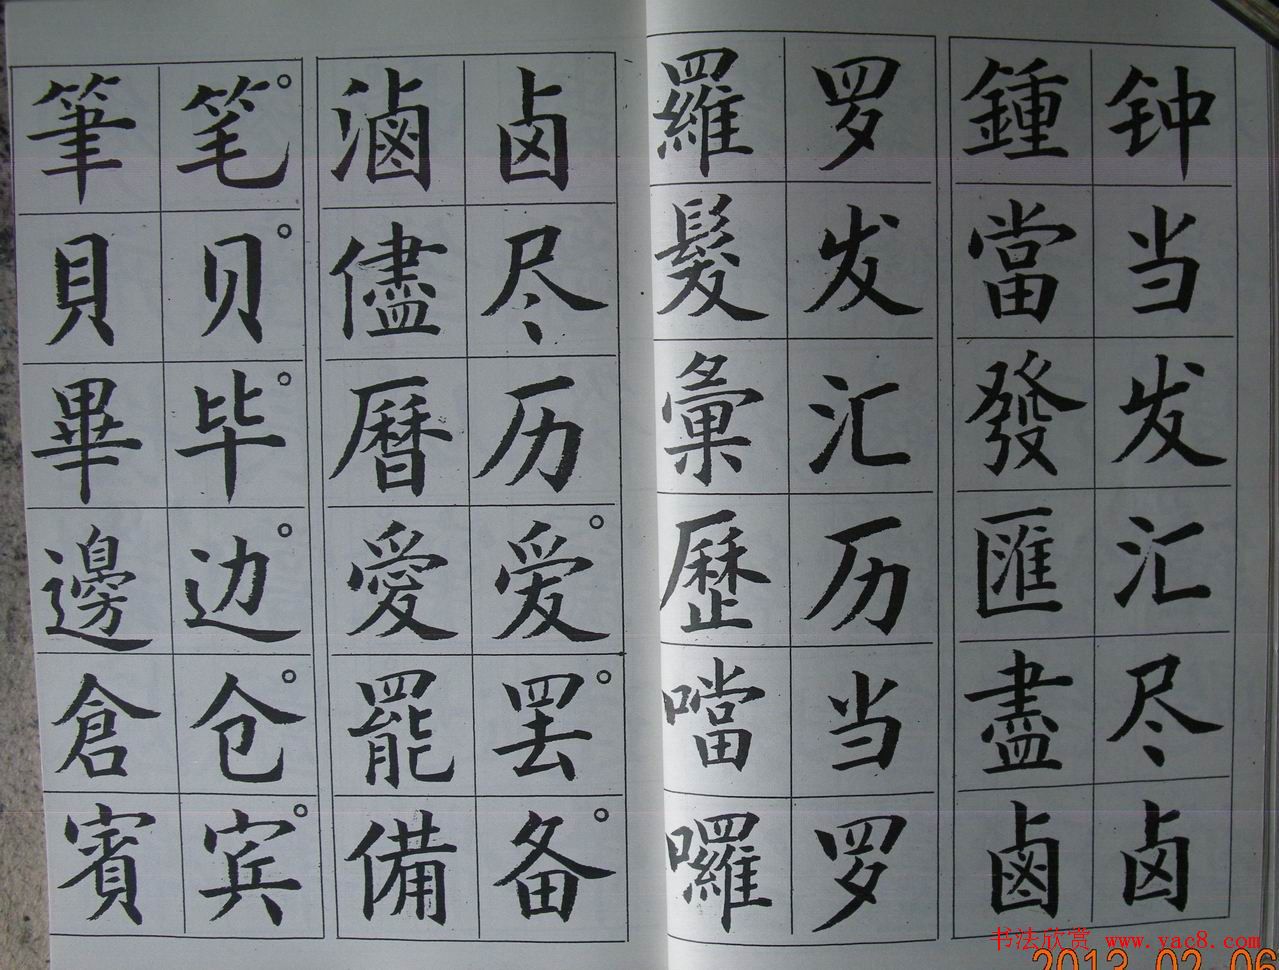 钟 鍾
当 當
发 發
汇 匯
尽 盡
卤 鹵
罗 羅
发 髮
汇 彙
历 歷
当 噹
罗 囉
卤 滷
尽 儘
历 曆
爱。 愛
罢。 罷
备。 備
笔。 筆
贝。 貝
毕。 畢
边。 邊
仓。 倉
宾。 賓
书法欣赏 www.yac8.com
2013.02.06